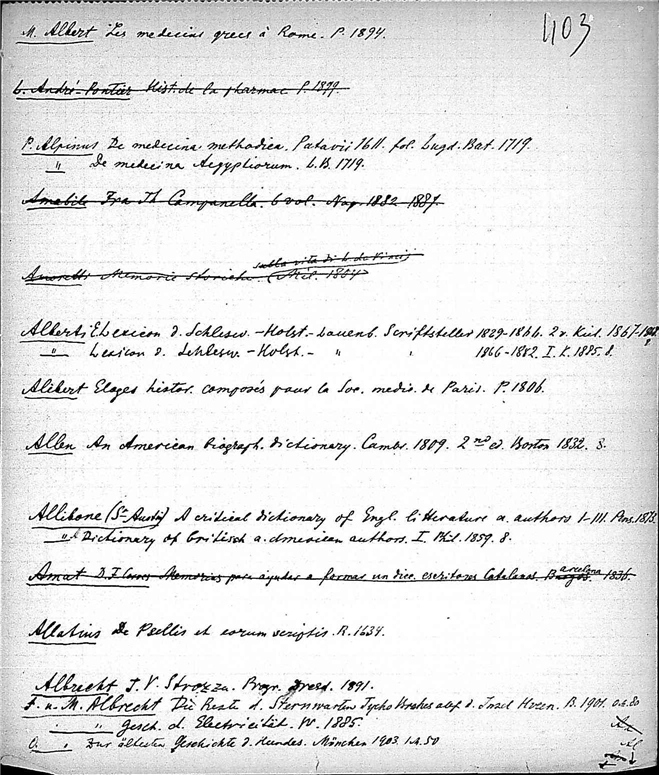 403
M. Albert Les medecins grecs à Rome. P. 1894.
L. André-Pontier Hist. de la pharmac P. 1899.
P. Alpinus De medecina methodica. Patavii 1611. fol. Lugd. Bat. 1719.
" De medecina Aegyptiorum. L.B. 1719.
Amabile Fra Th Campanella. 6 vol. Nap. 1882-1887.
sulla vita di L. de Vinci
Amoretti Memorie storiche. (Mil. 1804
Alberti E Lexicon d. Schlesw.-Holst.-Lauenb. Scriftsteller 1829-1866. 2 v. Kiel. 1867-1868
" Lexicon d. Schlesw.-Holst.- " " 1866-1882. I. K. 1885. 8.
Alibert Eloges histor. composés pour la Soc. medic. de Paris. P. 1806.
Allen An American biograph. dictionary. Cambr. 1809. 2nd ed. Boston 1832. 8.
Allibone (S. Austin) A critical dictionary of Engl. litterature a. authors I-III. 1873.
" Dictionary of British a. American authors. I. Phil. 1859. 8.
Amat D. F. Memorias para ayudar a formar un dicc. escritores Catalanes. Barcelona 1836.
Allatius De Psellis et eorum scriptis. R. 1634.
Albrecht T. V. Strozza. Progr. Dresd. 1891.
F. u. M. Albrecht Die Reste d. Sternwarten Tycho Brahes auf d. Insel Hveen. B. 1901. 0.4.80
" " Gesch. d. Electricität. W. 1885.
O. " Zur ältesten Geschichte d. Hundes. München 1903. 1.4.50
Al